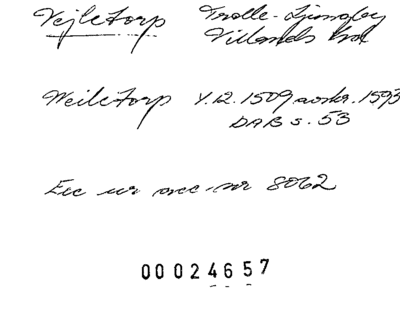 Vejletorp Trolle-Ljungby
Villands hd
Weiletorp Y.12.1509 avskr. 1593
DAB s. 53
Exc ur acc.nr 8062
00024657